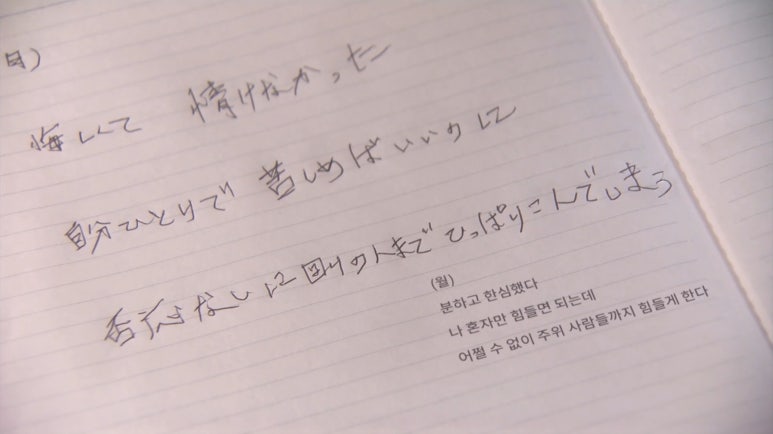 月)
悔しくて 情けなかった
自分ひとりで 苦しめばいいのに
否応なしに回りの人まで ひっぱりこんでしまう
(월)
분하고 한심했다
나 혼자만 힘들면 되는데
어쩔 수 없이 주위 사람들까지 힘들게 한다